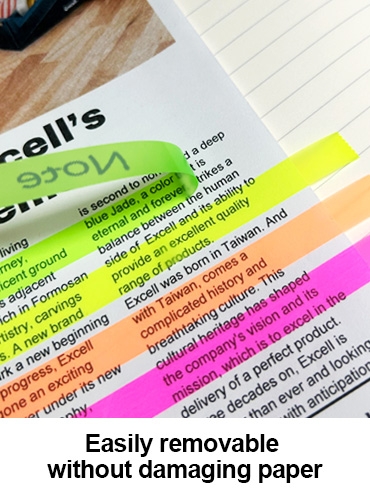 cell's
Note
living
rney,
icent ground
s adjacent
ich in Formosan
tistry, carvings
s. A new brand
rk a new beginning
progress, Excell
one an exciting
er under its new
phy,
is second to no d a deep
blue Jade, a color t is
eternal and forever strikes a
balance between the human
side of Excell and its ability to
provide an excellent quality
range of products.
Excell was born in Taiwan. And
with Taiwan, comes a
complicated history and
breathtaking culture. This
cultural heritage has shaped
the company's vision and its
mission, which is to excel in the
delivery of a perfect product.
e decades on, Excell is
than ever and looking
with anticipation
Easily removable
without damaging paper